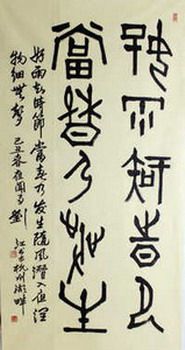 好雨知時節
當春乃發生
好雨知時節當春乃發生隨風潛入夜潤
物細無聲己丑春劉
江書於杭州湖畔